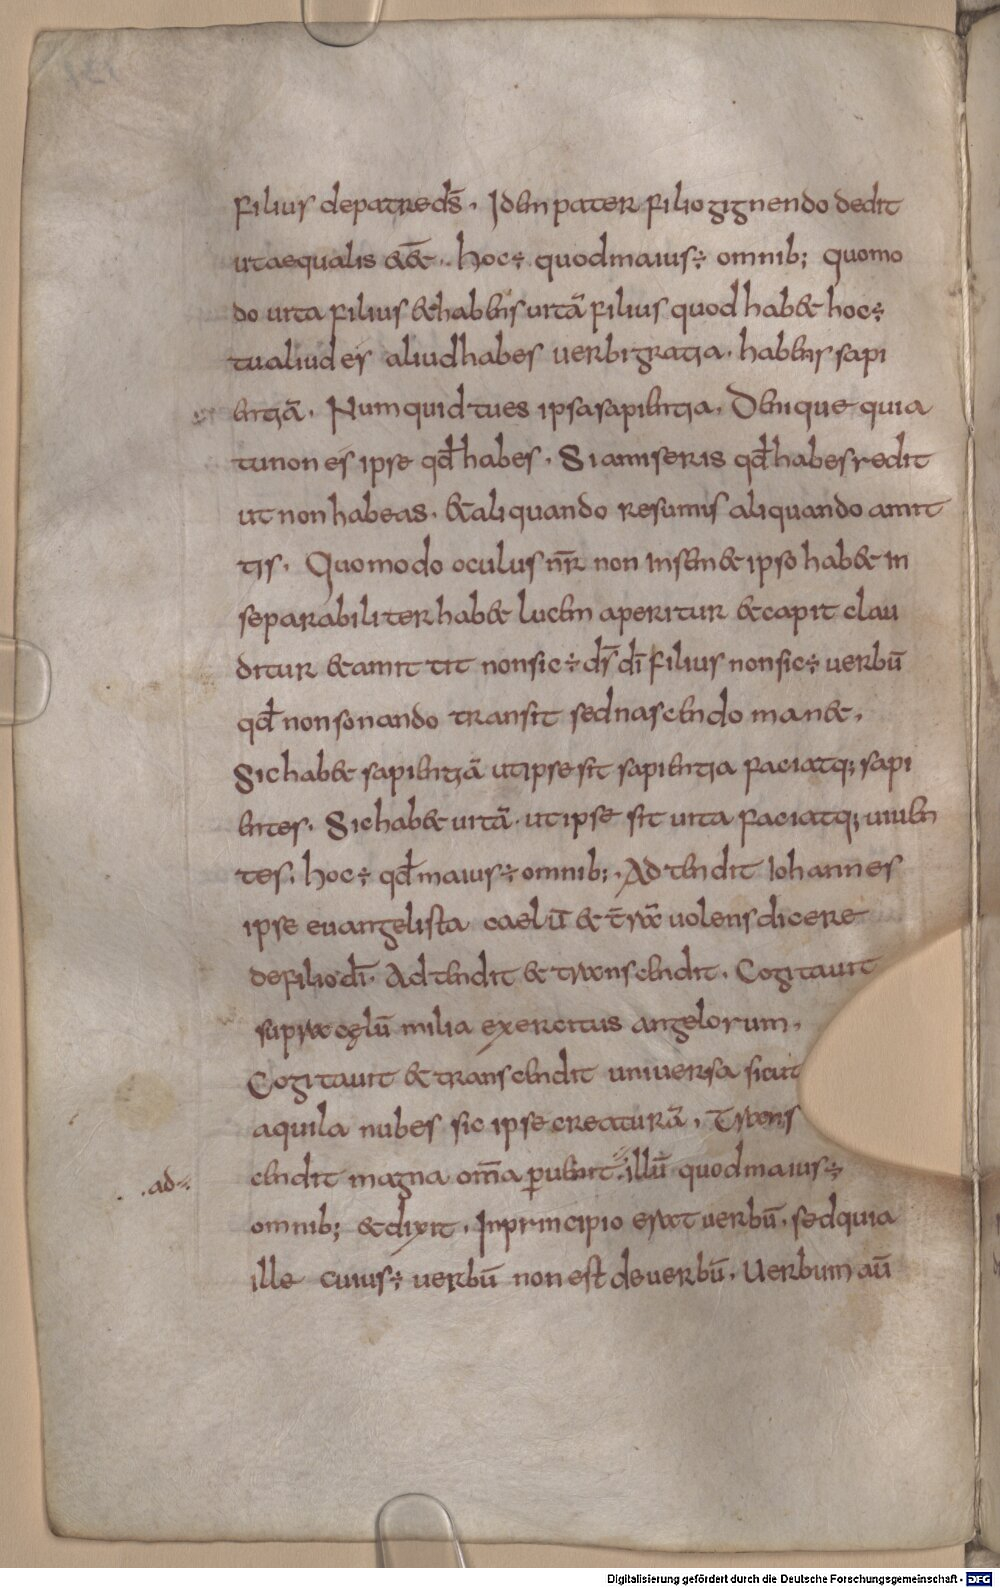 filius de patre ds̄. Idem pater filio gignendo dedit
ut aequalis ēēt. hoc ÷ quod maius ÷ omnib; quomo
do uita filius & habens uitā filius quod hab& hoc ÷
tu aliud es aliud habes uerbi gratia. habens sapi
entiā. Numquid tu es ipsa sapientia. Denique quia
tu non es ipse qđ habes. Si amiseris qđ habes redit
ut non habeas. & aliquando resumis aliquando amit
tis. Quomodo oculus nr̄ non in sem& ipso hab& in
separabiliter hab& lucem aperitur & capit clau
ditur & amittit non sic ÷ ds̄ dī filius non sic ÷ uerbū
qđ non sonando transit sed nascendo man&.
Sic hab& sapientiā ut ipse sit sapientia faciatq; sapi
entes. Sic hab& uitā. ut ipse sit uita faciatq; uiuen
tes. hoc ÷ qđ maius ÷ omnib;. Adtendit Iohannes
ipse euangelista caelū & t̄rā uolens dicere
de filio dī. Adtendit & transcendit. Cogitauit
supra cęlū milia exercitus angelorum.
Cogitauit & transcendit uniuersa sicut
aquila nubes sic ipse creaturā. Trans
cendit magna om̄a ꝑuenit illū quod maius ÷
.ad
omnib; & dixit. In principio erat uerbū. sed quia
ille cuius ÷ uerbū non est de uerbū. Uerbum aū
Digitalisierung gefördert durch die Deutsche Forschungsgemeinschaft - DFG